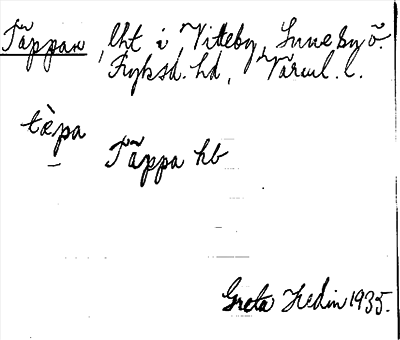 Täppan, lht i Vitteby, Sunne sn, ö.
Fryksd. hd, Värml. l.
tæ̀pa
Täppa hb
Greta Hedin 1935.